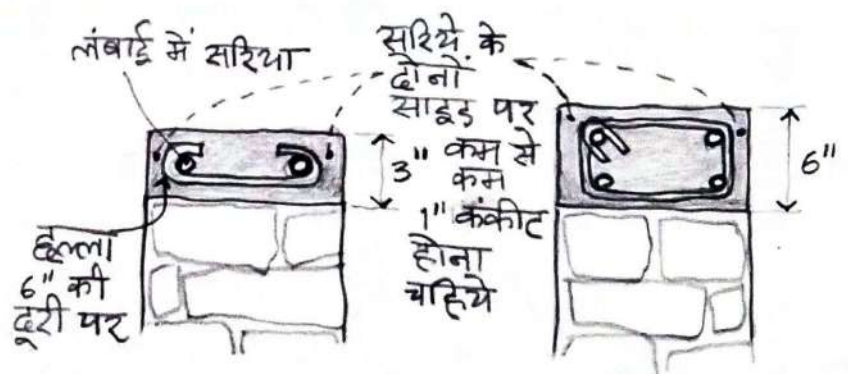 लंबाई में सरिया
सरिये के
दोनों
साइड पर
कम से
कम
1" कंकीट
होना
चहिये
3"
6"
छल्ला
6" की
दूरी पर